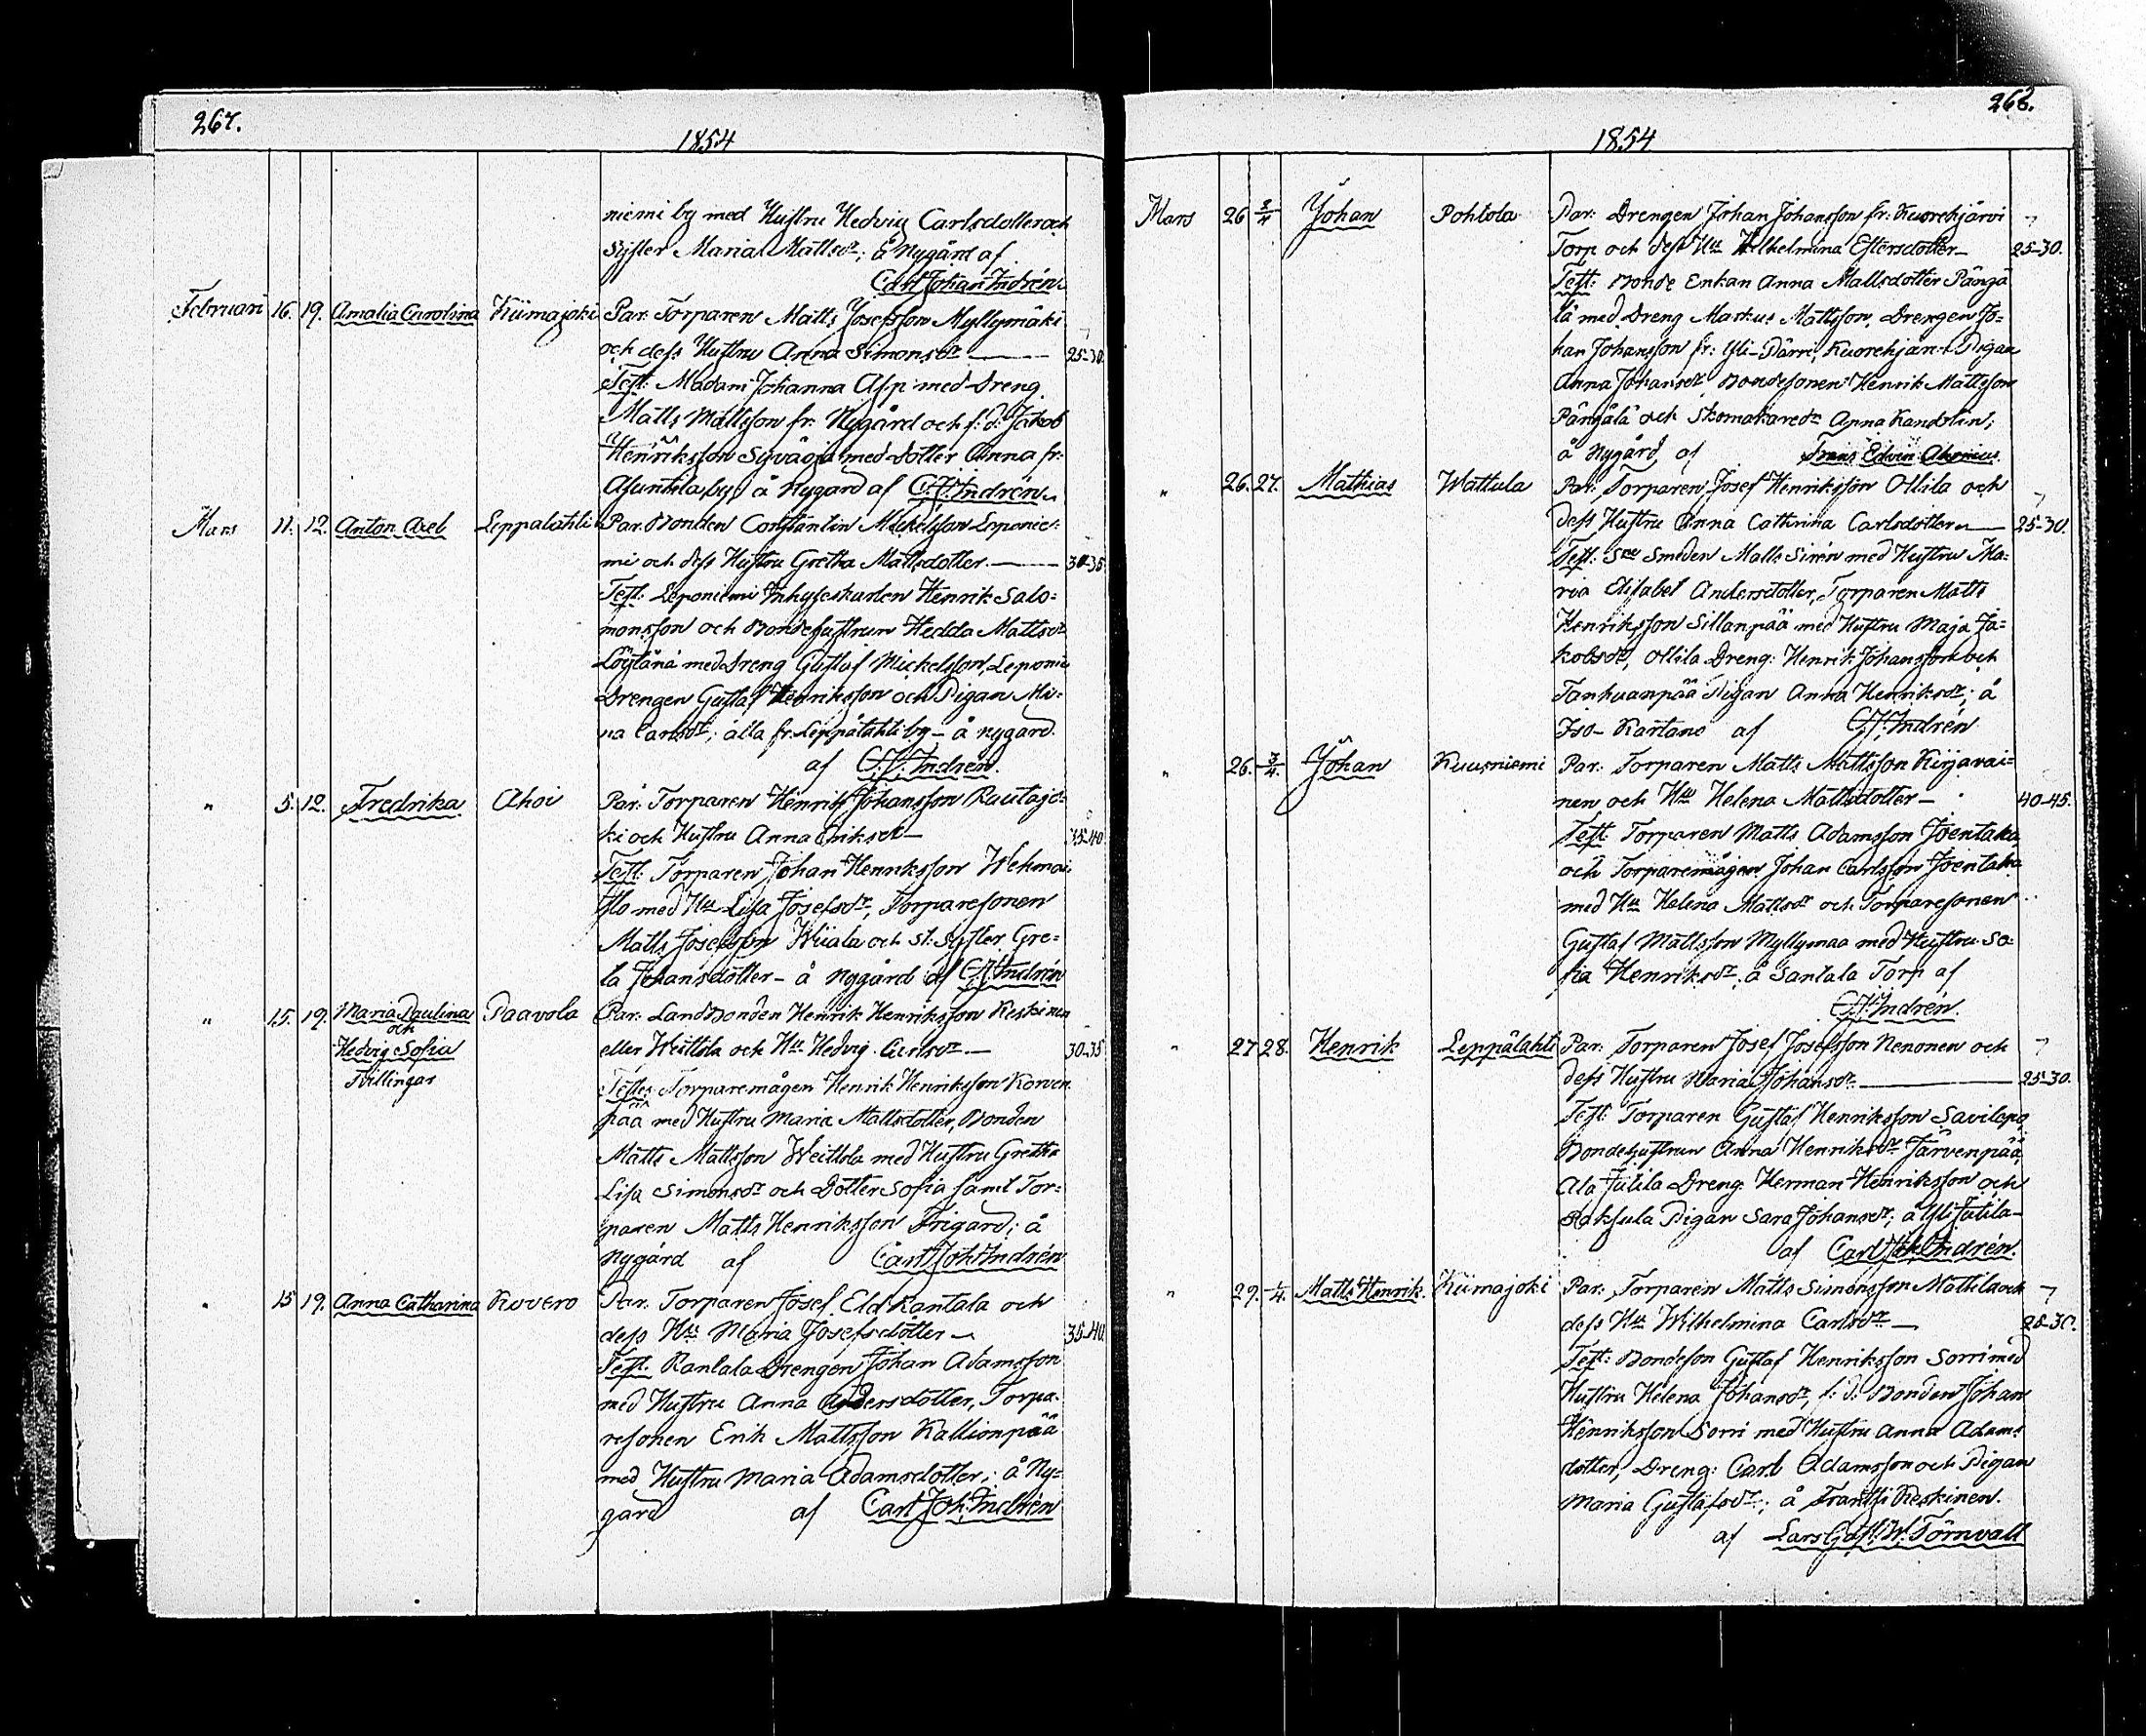 267.
1854
niemi by med Hustru Hedvig Carlsdotter och
Syster Maria Mattsdr; å Nygård af
Carl Johan Indrén.
Februari 16. 19. Amalia Carolina Kiimajoki Par: Torparen Matts Josefsson Myllymäki
och dess Hustru Anna Simonsdr — 25-30.
Test: Madam Johanna Asp med Dreng
Matts Mattsson fr: Nygård och f: d: Jakob
Henriksson Syväoja med dotter Anna fr:
Asuntila by å Nygård af C.J. Indrén
Mars 11. 12. Anton Axel Leppälahti Par. Bonden Constantin Mickelsson Leponie:
mi och dess Hustru Gretha Mattsdotter. — 30-35
Test: Leponiemi Inhyseskarlen Henrik Salo:
monsson och Bondehustrun Hedda Mattsdr
Löytänä med Dreng Gustaf Mickelsson, Leponie
Drengen Gustaf Henriksson och Pigan Mi:
na Carlsdr; alla fr. Leppälahti by – å nygård.
af C.J. Indrén.
" 5. 12. Fredrika Ahoi Par: Torparen Henrik Johansson Rautajo:
ki och Hustru Anna Eriksdr — 35-40
Test: Torparen Johan Henriksson Wehmai:
slo med Hu Lisa Josefsdr, Torparesonen
Matts Josefsson Wiiala och st: syster Gre:
ta Johansdotter – å nygård af C.J. Indrén
" 15. 19. Maria Paulina Paavola Par: Landbonden Henrik Henriksson Keskinen
och
Hedvig Sofia eller Weittola och Hu Hedvig Carlsdr. — 30-35
Tvillingar
Testes Torparemågen Henrik Henriksson Korven
pää med Hustru Maria Mattsdotter, Bonden
Matts Mattsson Weittola med Hustru Gretha
Lisa Simonsdr och Dotter Sofia samt Tor:
paren Matts Henriksson Frigard; å
Nygård af Carl Joh: Indrén
" 15 19. Anna Catharina Kuvero Par: Torparen Josef Eld Rantala och
dess Hu Maria Josefsdotter — 35-40.
Test. Rantala Drengen Johan Adamsson
med Hustru Anna Andersdotter, Torpa:
resonen Erik Mattsson Kallionpää
med Hustru Maria Adamsdotter; å Ny:
gård af Carl Joh: Indrén
268.
1854
Mars 26 2/4 Johan Pohtola Par: Drengen Johan Johansson fr: Kuorehjärvi
Torp och dess Hu Wilhelmina Estersdotter — 25-30.
Test: Bonde Enkan Anna Mattsdotter Pängä
lä med Dreng Markus Mattsson, Drengen Jo:
han Johansson fr: Yli-Pärri, Pigan
Anna Johansdr Bondesonen Henrik Mattsson
Pängälä och Skomakaredr Anna Randolin;
å Nygård af Frans Edvin
" 26. 27. Mathias Wattula Par: Torparen Josef Henriksson Ollila och
dess Hustru Anna Cathrina Carlsdotter — 25-30.
Test: Smeden Matts Sirén med Hustru Ma:
ria Elisabet Andersdotter, Torparen Matts
Henriksson Sillanpää med Hustru Maja Ja:
kobsdr, Ollila Dreng: Henrik Johansson och
Tanhuanpää Pigan Anna Henriksdr; å
Iso-Kartano af C.J. Indrén
" 26. 3/4. Johan Kuusniemi Par: Torparen Matts Mattsson Kirjavai:
nen och Hu Helena Mattsdotter — 40-45.
Test: Torparen Matts Adamsson Joentaka
och Torparemågen Johan Carlsson Joentaka
med Hu Helena Mattsdr och Torparesonen
Gustaf Mattsson Myllymaa med Hustru So:
fia Henriksdr, å Santala Torp af
C.J. Indrén.
" 27 28. Henrik Leppälahti Par: Torparen Josef Josefsson Nenonen och
dess Hustru Maria Johansdr — 25-30.
Test: Torparen Gustaf Henriksson Savilepo,
Bondehustrun Anna Henriksdr Järvenpää,
Ala Jutila Dreng: Herman Henriksson och
Pigan Sara Johansdr; å Yli Jutila
af Carl Joh: Indrén.
" 29. 1/4. Matts Henrik Kiimajoki Par: Torparen Matts Simonsson Mattila och
dess Hu Wilhelmina Carlsdr — 25-30.
Test: Bondeson Gustaf Henriksson Sorri med
Hustru Helena Johansdr, f: d: Bonden Johan
Henriksson Sorri med Hustru Anna Adams
dotter, Dreng: Carl Adamsson och Pigan
Maria Gustafsdr; å Frantti Keskinen.
af Lars Gust. W. Törnvall